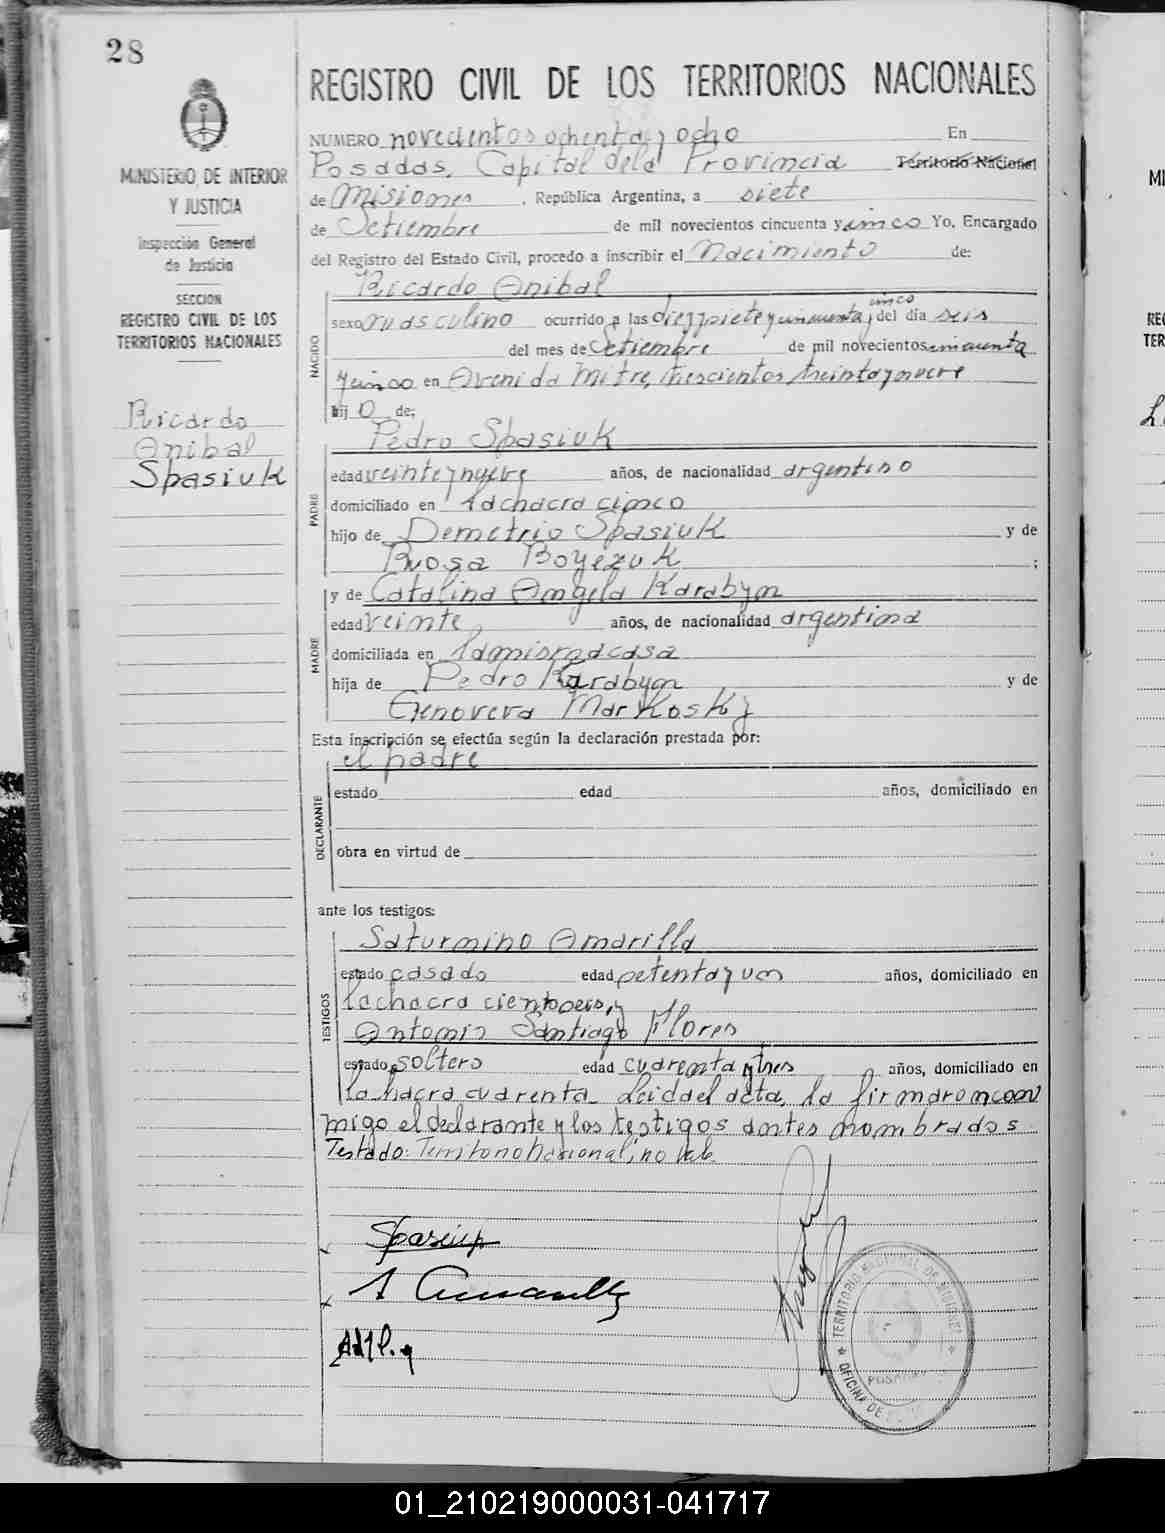 28
MINISTERIO DE INTERIOR
Y JUSTICIA
Inspección General
de Justicia
SECCION
REGISTRO CIVIL DE LOS
TERRITORIOS NACIONALES
Ricardo
Anibal
Spasiuk
REGISTRO CIVIL DE LOS TERRITORIOS NACIONALES
NUMERO novecientos ochenta y ocho En
Posadas, Capital dela Provincia Territorio Nacional
de Misiones , República Argentina, a siete
de Setiembre de mil novecientos cincuenta y cinco Yo, Encargado
del Registro del Estado Civil, procedo a inscribir el Nacimiento de:
NACIDO
Ricardo Anibal
cinco
sexo masculino ocurrido a las diezsiete y cincuenta y del día seis
del mes de Setiembre de mil novecientos cincuenta
y cinco en Avenida Mitre, trescientos treinta y nueve
hij o de;
PADRE
Pedro Spasiuk
edad veinte y nueve años, de nacionalidad argentino
domiciliado en lachacra cinco
hijo de Demetrio Spasiuk y de
Ruosa Boyezuk ;
MADRE
y de Catalina Angela Karabyn
edad veinte años, de nacionalidad argentina
domiciliada en lamismacasa
hija de Pedro Karabyn y de
Genoveva Markosky
Esta inscripción se efectúa según la declaración prestada por:
DECLARANTE
el padre
estado edad años, domiciliado en
obra en virtud de
ante los testigos:
TESTIGOS
Saturnino Amarilla
estado casado edad setentayun años, domiciliado en
lachacra ciento y
Antonio Santiago Flores
estado soltero edad cuarenta y tres años, domiciliado en
la chacra cuarenta. Leidael acta, la firmaron con
migo el declarante y los testigos antes nombrados
Testado: Territorio Nacional, no vale.
Spasiuk
A Amarilla
TERRITORIO NACIONAL DE MISIONES
POSADAS
OFICINA DE
01_210219000031-041717